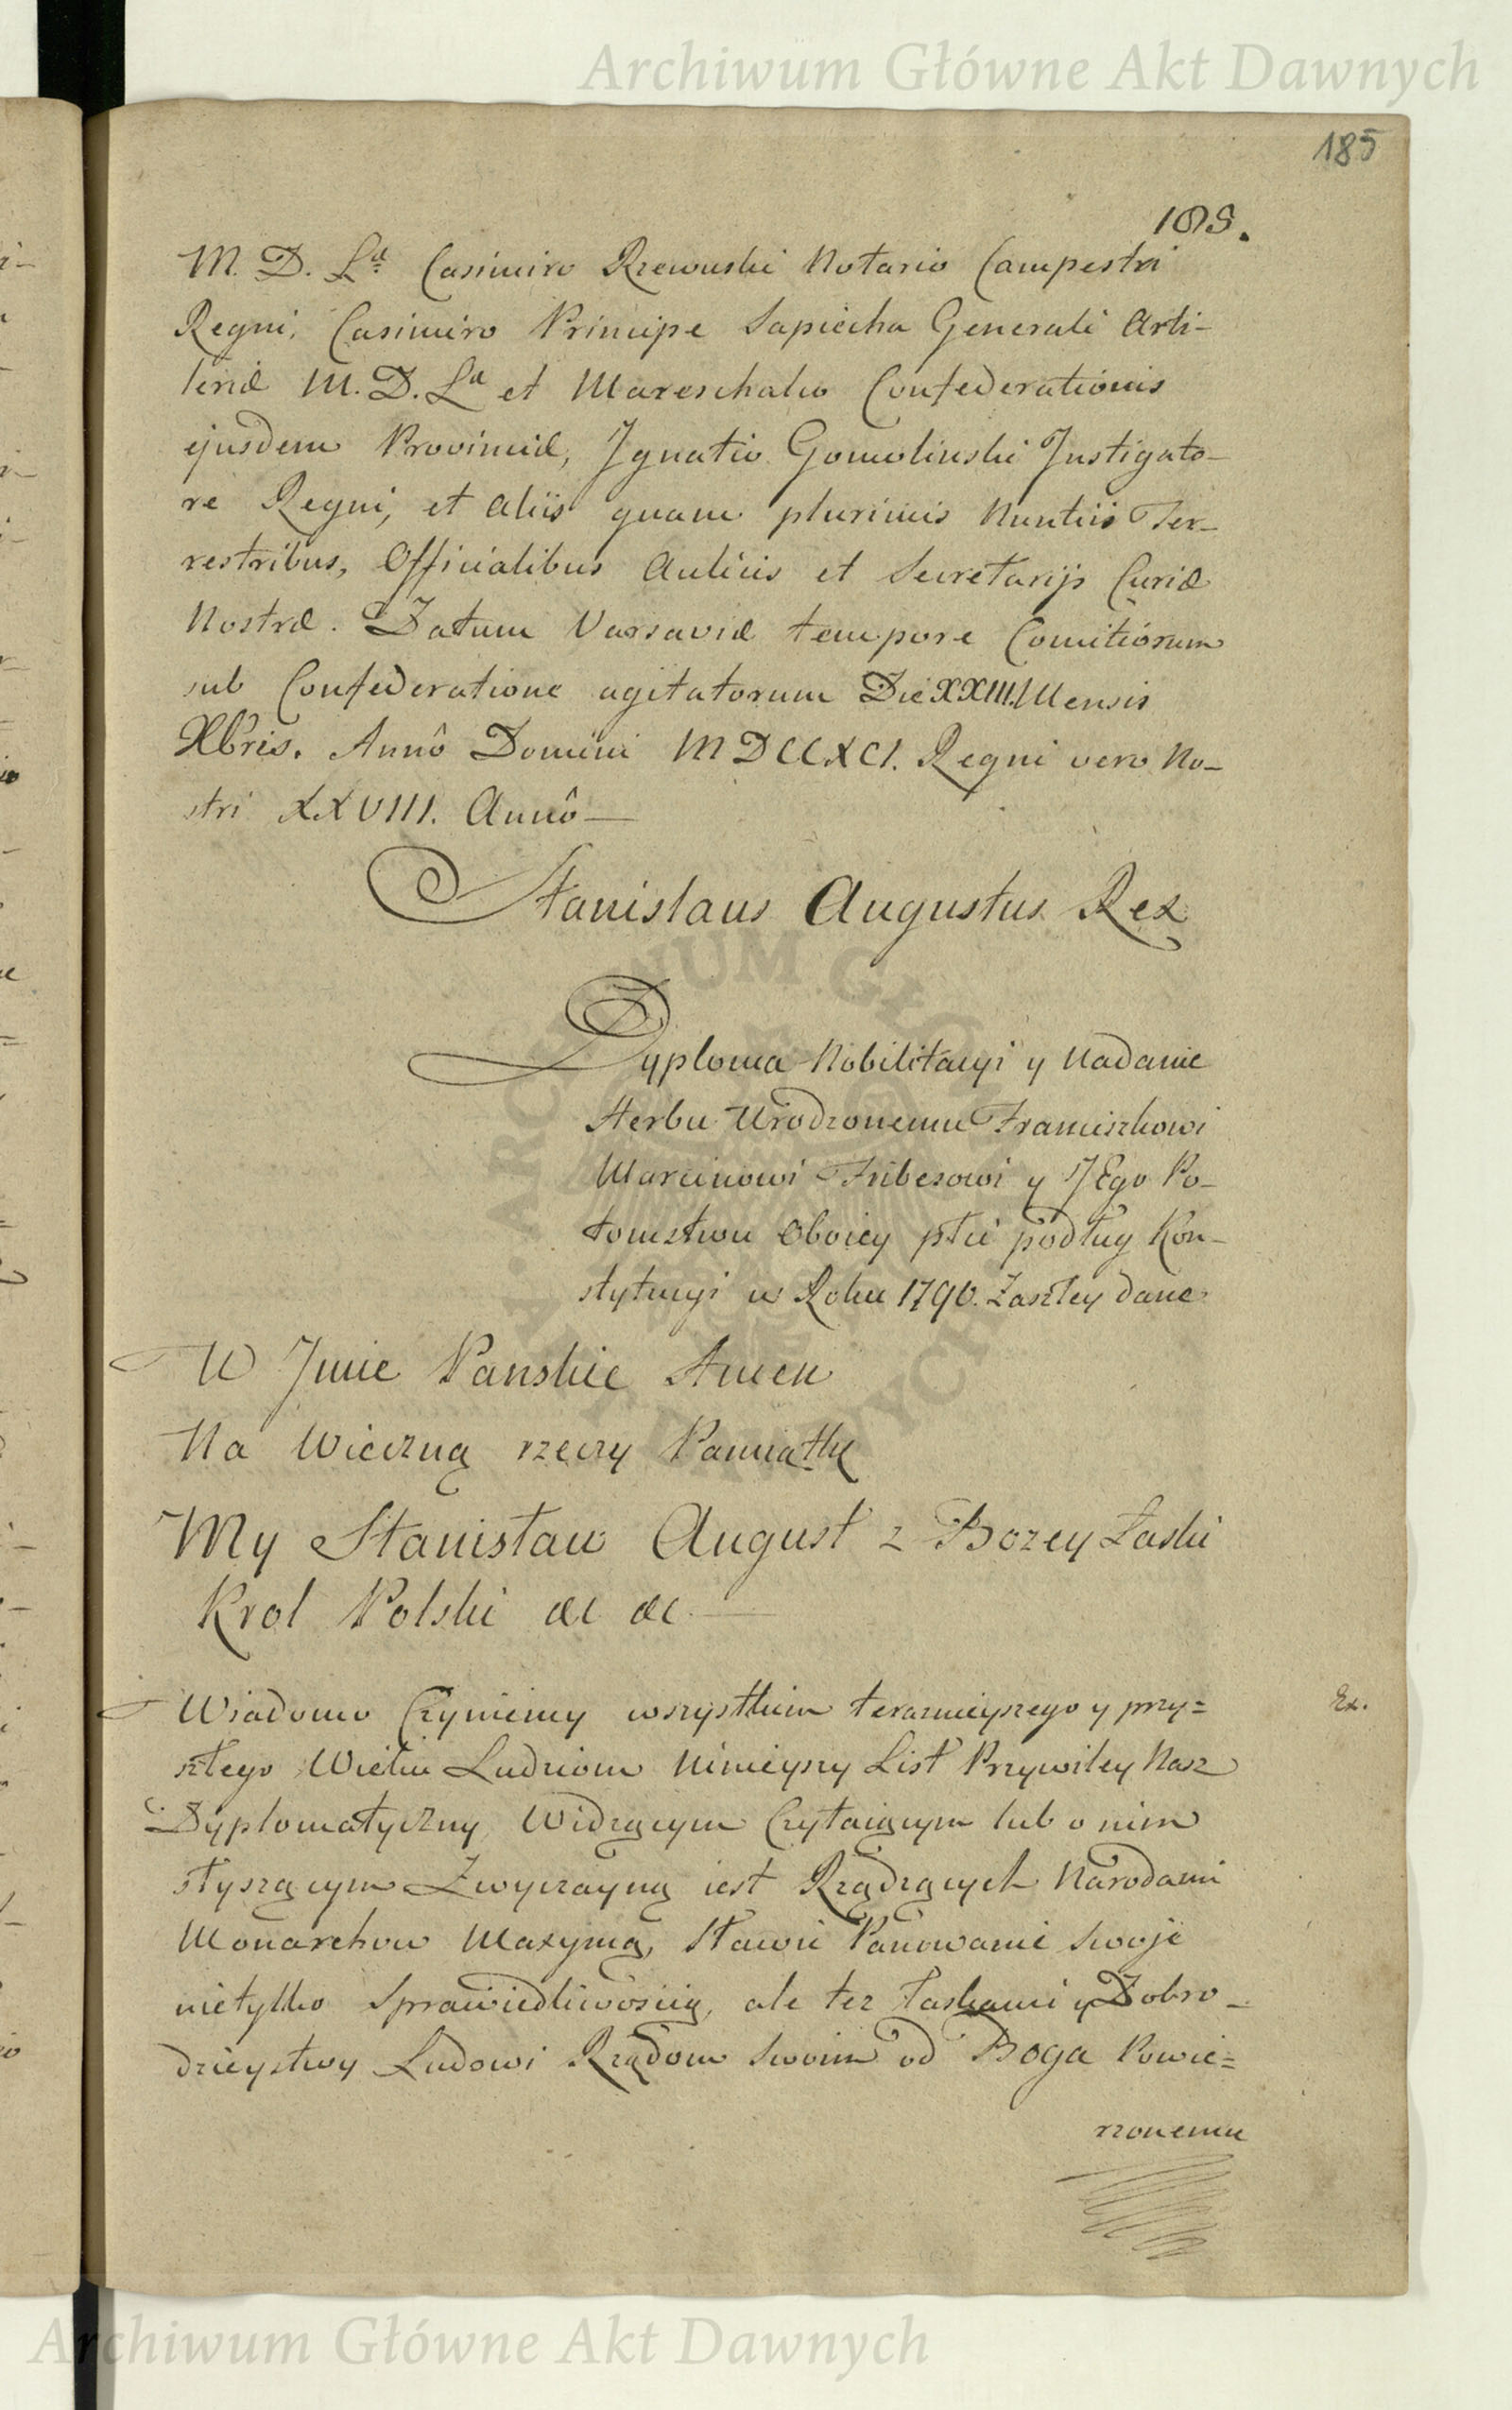 Archiwum Główne Akt Dawnych
185
M. D. Lᵃ Casimiro Rzewuski Notario Campestri
Regni, Casimiro Principe Sapiecha Generali Arti-
leriæ M. D. Lᵃ et Mareschalco Confederationis
ejusdem Provinciæ, Jgnatio Gomolinski Jnstigato-
re Regni, et aliis quam plurimis Nuntiis Ter-
restribus, Officialibus Aulicis et Secretarijs Curiæ
Nostræ. Datum Varsaviæ tempore Comitiorum
sub Confederatione agitatorum Die XXIII. Mensis
Xbris. Annô Domini MDCCXCI. Regni vero No-
stri XXVIII. Annô
Stanislaus Augustus Rex
Dyploma Nobilitacyi y Nadanie
Herbu Urodzonemu Franciszkowi
Marcinowi Fribesowi y JEgo Po-
tomstwu Oboiey płci podług Kon-
stytucyi w Roku 1790. Zaszłey dane
W Jmie Panskie Amen
Na Wieczną rzeczy Pamiątkę
My Stanisław August z Bozey Łaski
Krol Polski &c &c
Wiadomo Czyniemy wszystkim teraznieyszego y przy=
szłego Wieku Ludziom Ninieyszy List Przywiley Nasz
Dyplomatyczny Widzącym Czytaiącym lub o nim
słyszącym Zwyczayną iest Rządzących Narodami
Monarchow Maxymą, Sławić Panowanie Swoje
nietylko Sprawiedliwością, ale tez łaskami y Dobro-
dzieystwy Ludowi Rządom Swoim od Boga Powie=
Ex.
rzonemu
Archiwum Główne Akt Dawnych